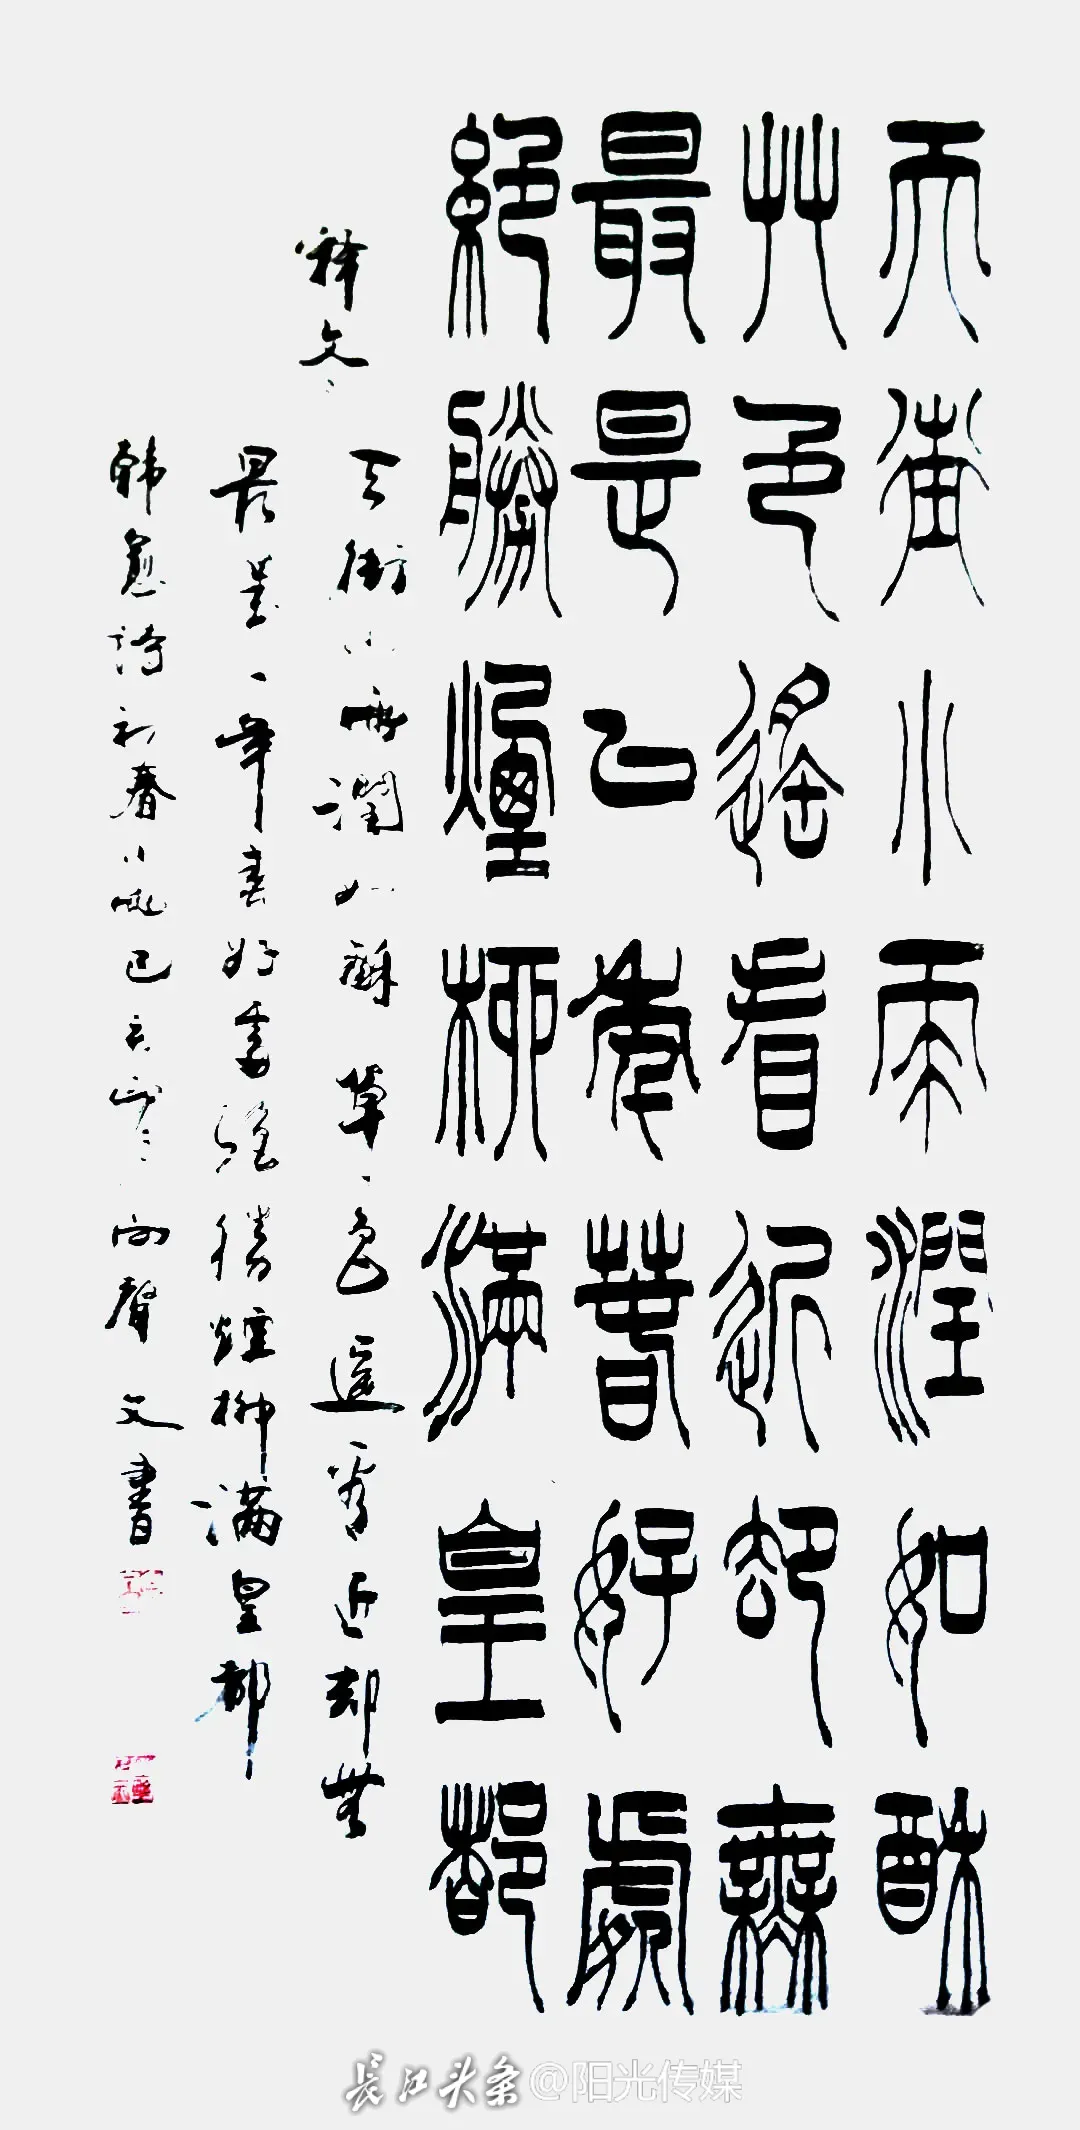 天街小雨潤如酥
艸色遙看近卻無
最是一年春好處
絕勝煙柳滿皇都
释文
天街小雨潤如酥草色遥看近却無
最是一年春好處絕勝煙柳滿皇都
韩愈詩初春小雨己亥 向聲文書
長江头条@阳光传媒